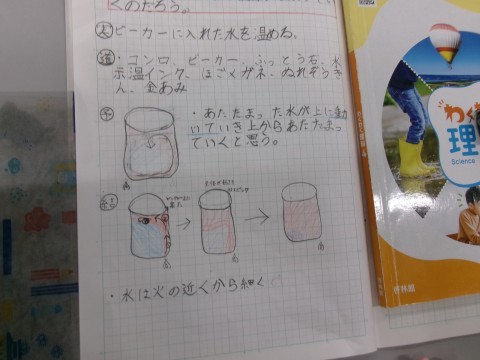 くのだろう。
方 ビーカーに入れた水を温める。
道 ・コンロ、ビーカー、ふっとう石、水
示温インク、ほごメガネ、ぬれぞうき
ん、金あみ
予 ・あたたまった水が上に動
いていき上からあたたまっ
ていくと思う。
結
・水は火の近くから細く
わく
理
Science
啓林館